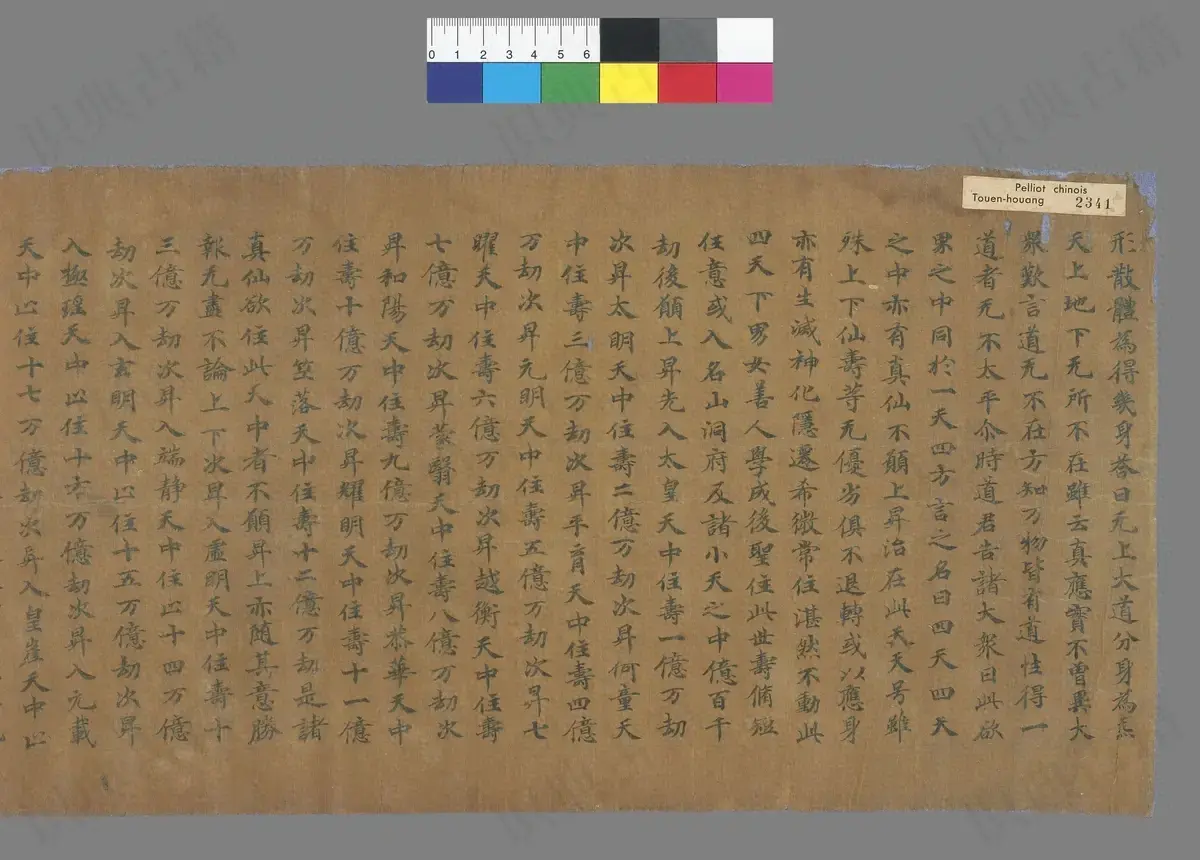 0 1 2 3 4 5 6
Pelliot chinois
Touen-houang 2341
形散體為得幾身荅曰无上大道分身為炁
天上地下无所不在雖云真應實不曽異大
衆歎言道无不在方知万物皆有道性得一
道者无不太平尒時道君告諸大衆曰此欲
界之中同於一天四方言之名曰四天四天
之中亦有真仙不願上昇治在此天天号雖
殊上下仙壽等无優劣俱不退轉或以應身
亦有生滅神化隱還希微常住湛然不動此
四天下男女善人學成後聖住此世壽脩短
任意或入名山洞府及諸小天之中億百千
劫後願上昇先入太皇天中住壽一億万劫
次昇太明天中住壽二億万劫次昇何童天
中住壽三億万劫次昇平育天中住壽四億
万劫次昇元明天中住壽五億万劫次昇七
曜天中住壽六億万劫次昇越衡天中住壽
七億万劫次昇蒙翳天中住壽八億万劫次
昇和陽天中住壽九億万劫次昇恭華天中
住壽十億万劫次昇耀明天中住壽十一億
万劫次昇笁落天中住壽十二億万劫是諸
真仙欲住此天中者不願昇上亦随其意勝
報无盡不論上下次昇入虛明天中住壽十
三億万劫次昇入端静天中住止十四万億
劫次昇入玄明天中止住十五万億劫次昇
入極瑶天中止住十六万億劫次昇入元載
天中止住十七万億劫次昇入皇崖天中止
识典古籍